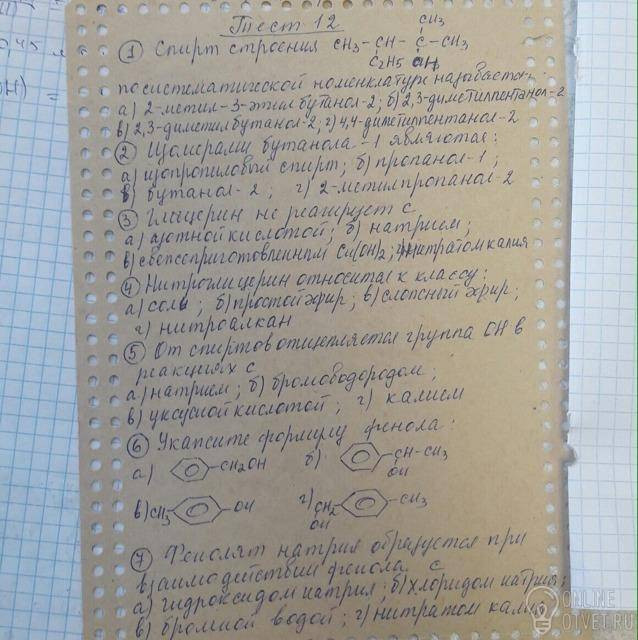 Тест 12
CH3
① Спирт строения CH3 - CH - C - CH3
C2H5 OH
по систематической номенклатуре называется
а) 2-метил-3-этилбутанол-2; б) 2,3-диметилпентанол-2
в) 2,3-диметилбутанол-2; г) 4,4-диметилпентанол-2
② Изомерами бутанола-1 являются:
а) изопропиловый спирт; б) пропанол-1;
в) бутанол-2; г) 2-метилпропанол-2
③ Глицерин не реагирует с
а) азотной кислотой; б) натрием;
в) свежеприготовленным Cu(OH)2; г) нитратом калия
④ Нитроглицерин относится к классу:
а) соль; б) простой эфир; в) сложный эфир;
г) нитроалкан
⑤ От спиртов отщепляется группа OH в
реакциях с
а) натрием; б) бромоводородом;
в) уксусной кислотой; г) калием
⑥ Укажите формулу фенола:
а) CH2OH б) CH-CH3
OH
в) CH3 OH г) CH2 CH3
OH
⑦ Фенолят натрия образуется при
взаимодействии фенола с
а) гидроксидом натрия; б) хлоридом натрия;
в) бромной водой; г) нитратом калия
ONLINE
OTVET.RU